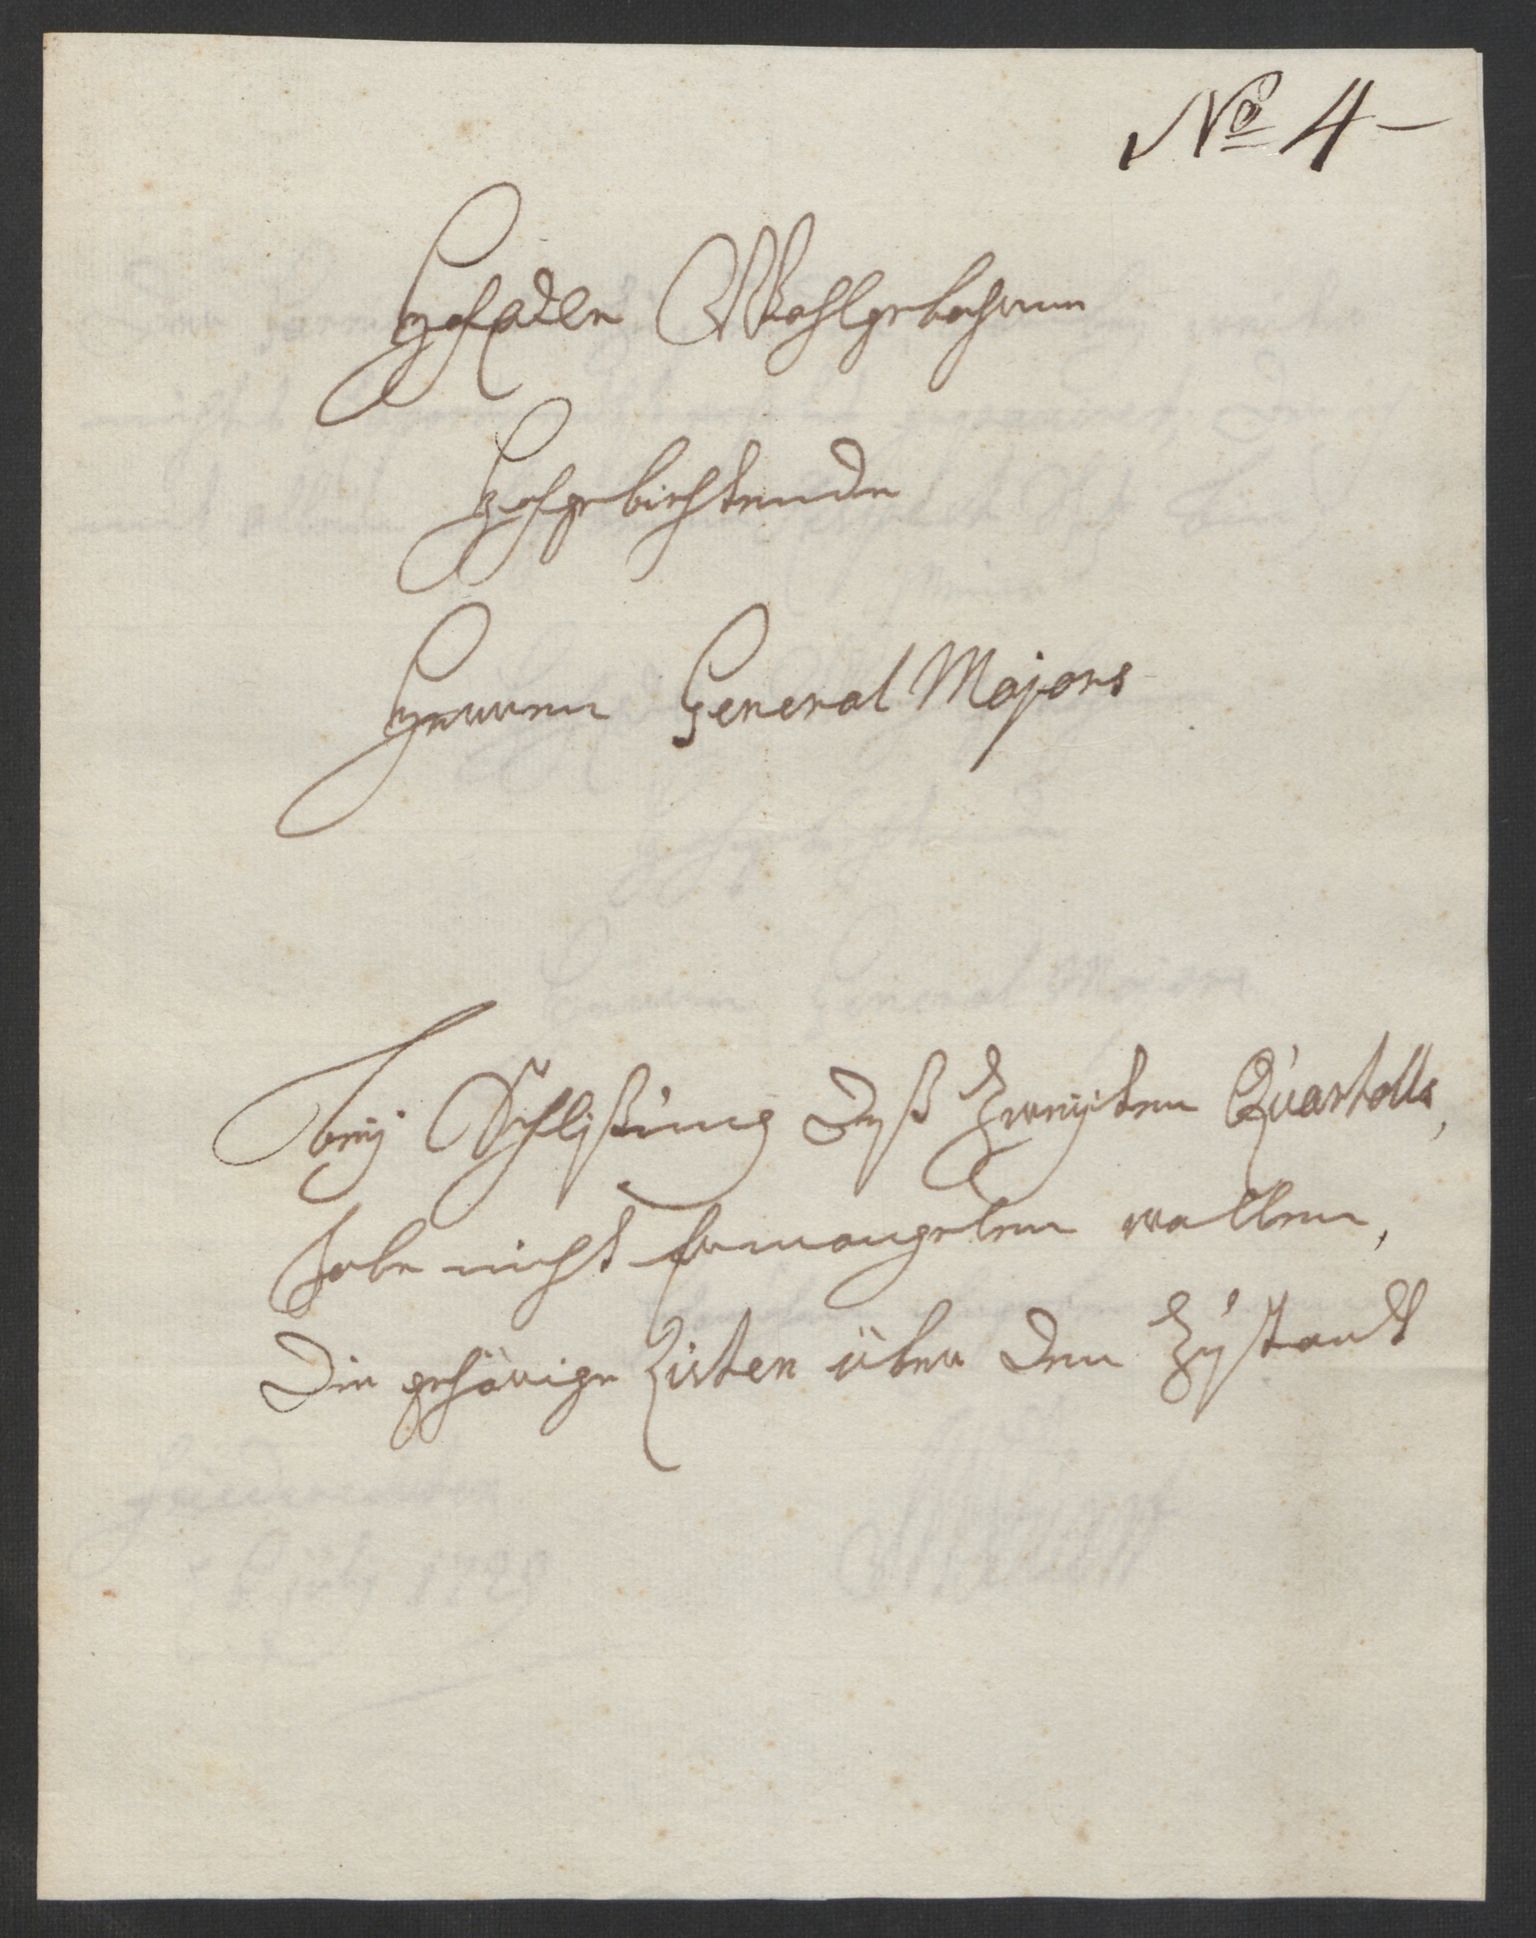 No 4-
HochEdler Wohlgebohrnen
Hochgebiethende
Herren General Majors
Beÿ Schlißung dyß Zweÿten Quartolls,
habe nicht ermangelen wollen,
die gehörige Listen über den Zustandt